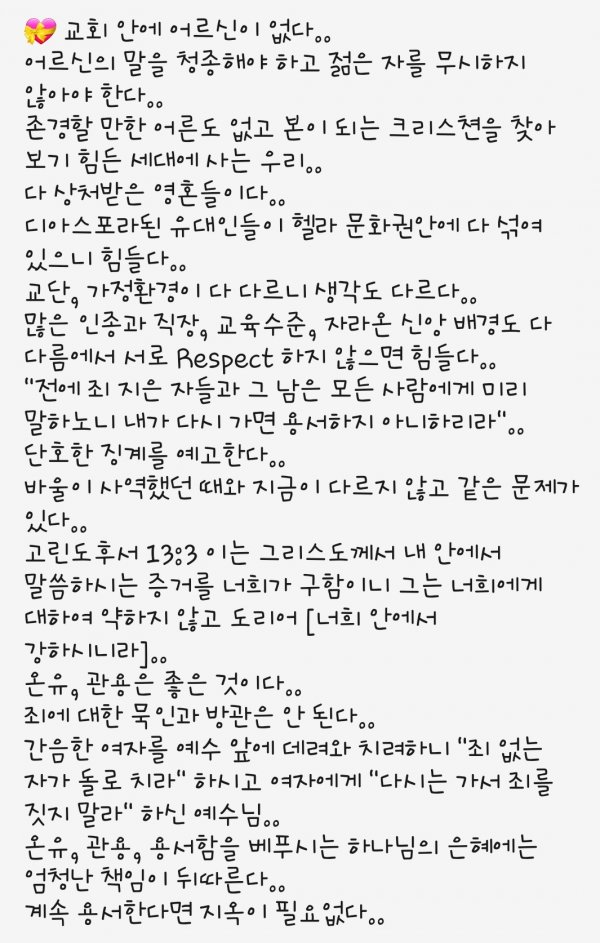 💝 교회 안에 어르신이 없다..
어르신의 말을 청종해야 하고 젊은 자를 무시하지
않아야 한다..
존경할 만한 어른도 없고 본이 되는 크리스쳔을 찾아
보기 힘든 세대에 사는 우리..
다 상처받은 영혼들이다..
디아스포라된 유대인들이 헬라 문화권안에 다 섞여
있으니 힘들다..
교단, 가정환경이 다 다르니 생각도 다르다..
많은 인종과 직장, 교육수준, 자라온 신앙 배경도 다
다름에서 서로 Respect 하지 않으면 힘들다..
"전에 죄 지은 자들과 그 남은 모든 사람에게 미리
말하노니 내가 다시 가면 용서하지 아니하리라"..
단호한 징계를 예고한다..
바울이 사역했던 때와 지금이 다르지 않고 같은 문제가
있다..
고린도후서 13:3 이는 그리스도께서 내 안에서
말씀하시는 증거를 너희가 구함이니 그는 너희에게
대하여 약하지 않고 도리어 [너희 안에서
강하시니라]..
온유, 관용은 좋은 것이다..
죄에 대한 묵인과 방관은 안 된다..
간음한 여자를 예수 앞에 데려와 치려하니 "죄 없는
자가 돌로 치라" 하시고 여자에게 "다시는 가서 죄를
짓지 말라" 하신 예수님..
온유, 관용, 용서함을 베푸시는 하나님의 은혜에는
엄청난 책임이 뒤따른다..
계속 용서한다면 지옥이 필요없다..